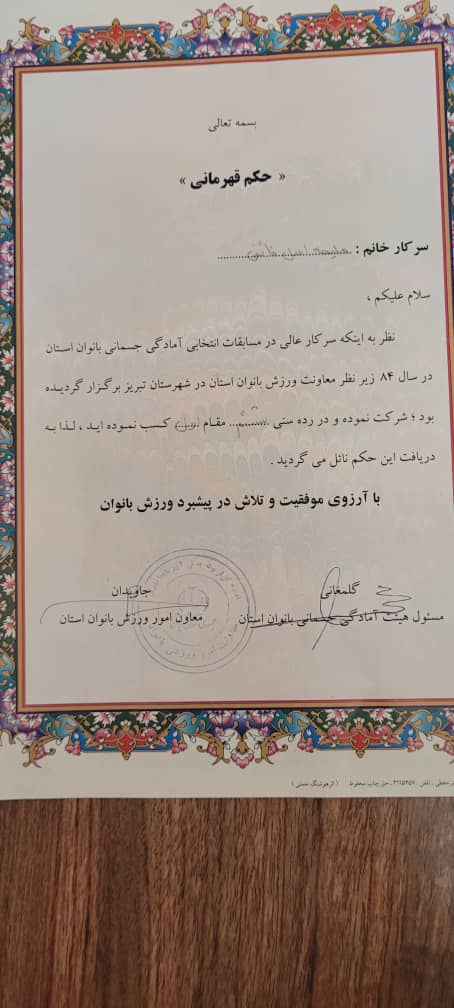 بسمه تعالی
« حکم قهرمانی »
سرکار خانم :
سلام علیکم ،
نظر به اینکه سرکار عالی در مسابقات انتخابی آمادگی جسمانی بانوان استان
در سال ۸۴ زیر نظر معاونت ورزش بانوان استان در شهرستان تبریز برگزار گردیده
بود ؛ شرکت نموده و در رده سنی مقام کسب نموده اید ، لذا به
دریافت این حکم نائل می گردید .
با آرزوی موفقیت و تلاش در پیشبرد ورزش بانوان
گلمغانی
مسئول هیئت آمادگی جسمانی بانوان استان
جاویدان
معاون امور ورزش بانوان استان
حق چاپ محفوظ